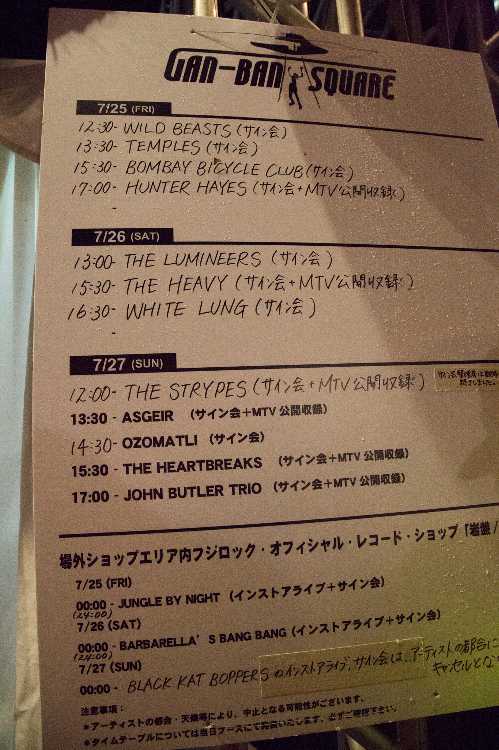 GAN-BAN SQUARE
7/25 (FRI)
12:30- WILD BEASTS (サイン会)
13:30- TEMPLES (サイン会)
15:30- BOMBAY BICYCLE CLUB (サイン会)
17:00- HUNTER HAYES (サイン会+MTV公開収録)
-
7/26 (SAT)
13:00- THE LUMINEERS (サイン会)
15:30- THE HEAVY (サイン会+MTV公開収録)
16:30- WHITE LUNG (サイン会)
-
7/27 (SUN)
12:00- THE STRYPES (サイン会+MTV公開収録)
13:30 - ASGEIR (サイン会+MTV 公開収録)
14:30- OZOMATLI (サイン会)
15:30 - THE HEARTBREAKS (サイン会+MTV 公開収録)
17:00 - JOHN BUTLER TRIO (サイン会+MTV 公開収録)
場外ショップエリア内フジロック・オフィシャル・レコード・ショップ「岩盤/
7/25 (FRI)
00:00 - JUNGLE BY NIGHT (インストアライブ+サイン会)
(24:00)
7/26 (SAT)
00:00 - BARBARELLA'S BANG BANG (インストアライブ+サイン会)
(24:00)
7/27 (SUN)
00:00 - BLACK KAT BOPPERS のインストアライブ、サイン会は、アーティストの都合に
キャンセルとな
注意事項:
*アーティストの都合・天候等により、中止となる可能性がございます。
*タイムテーブルについては当日ブースにて発表いたします。必ずご確認下さい。